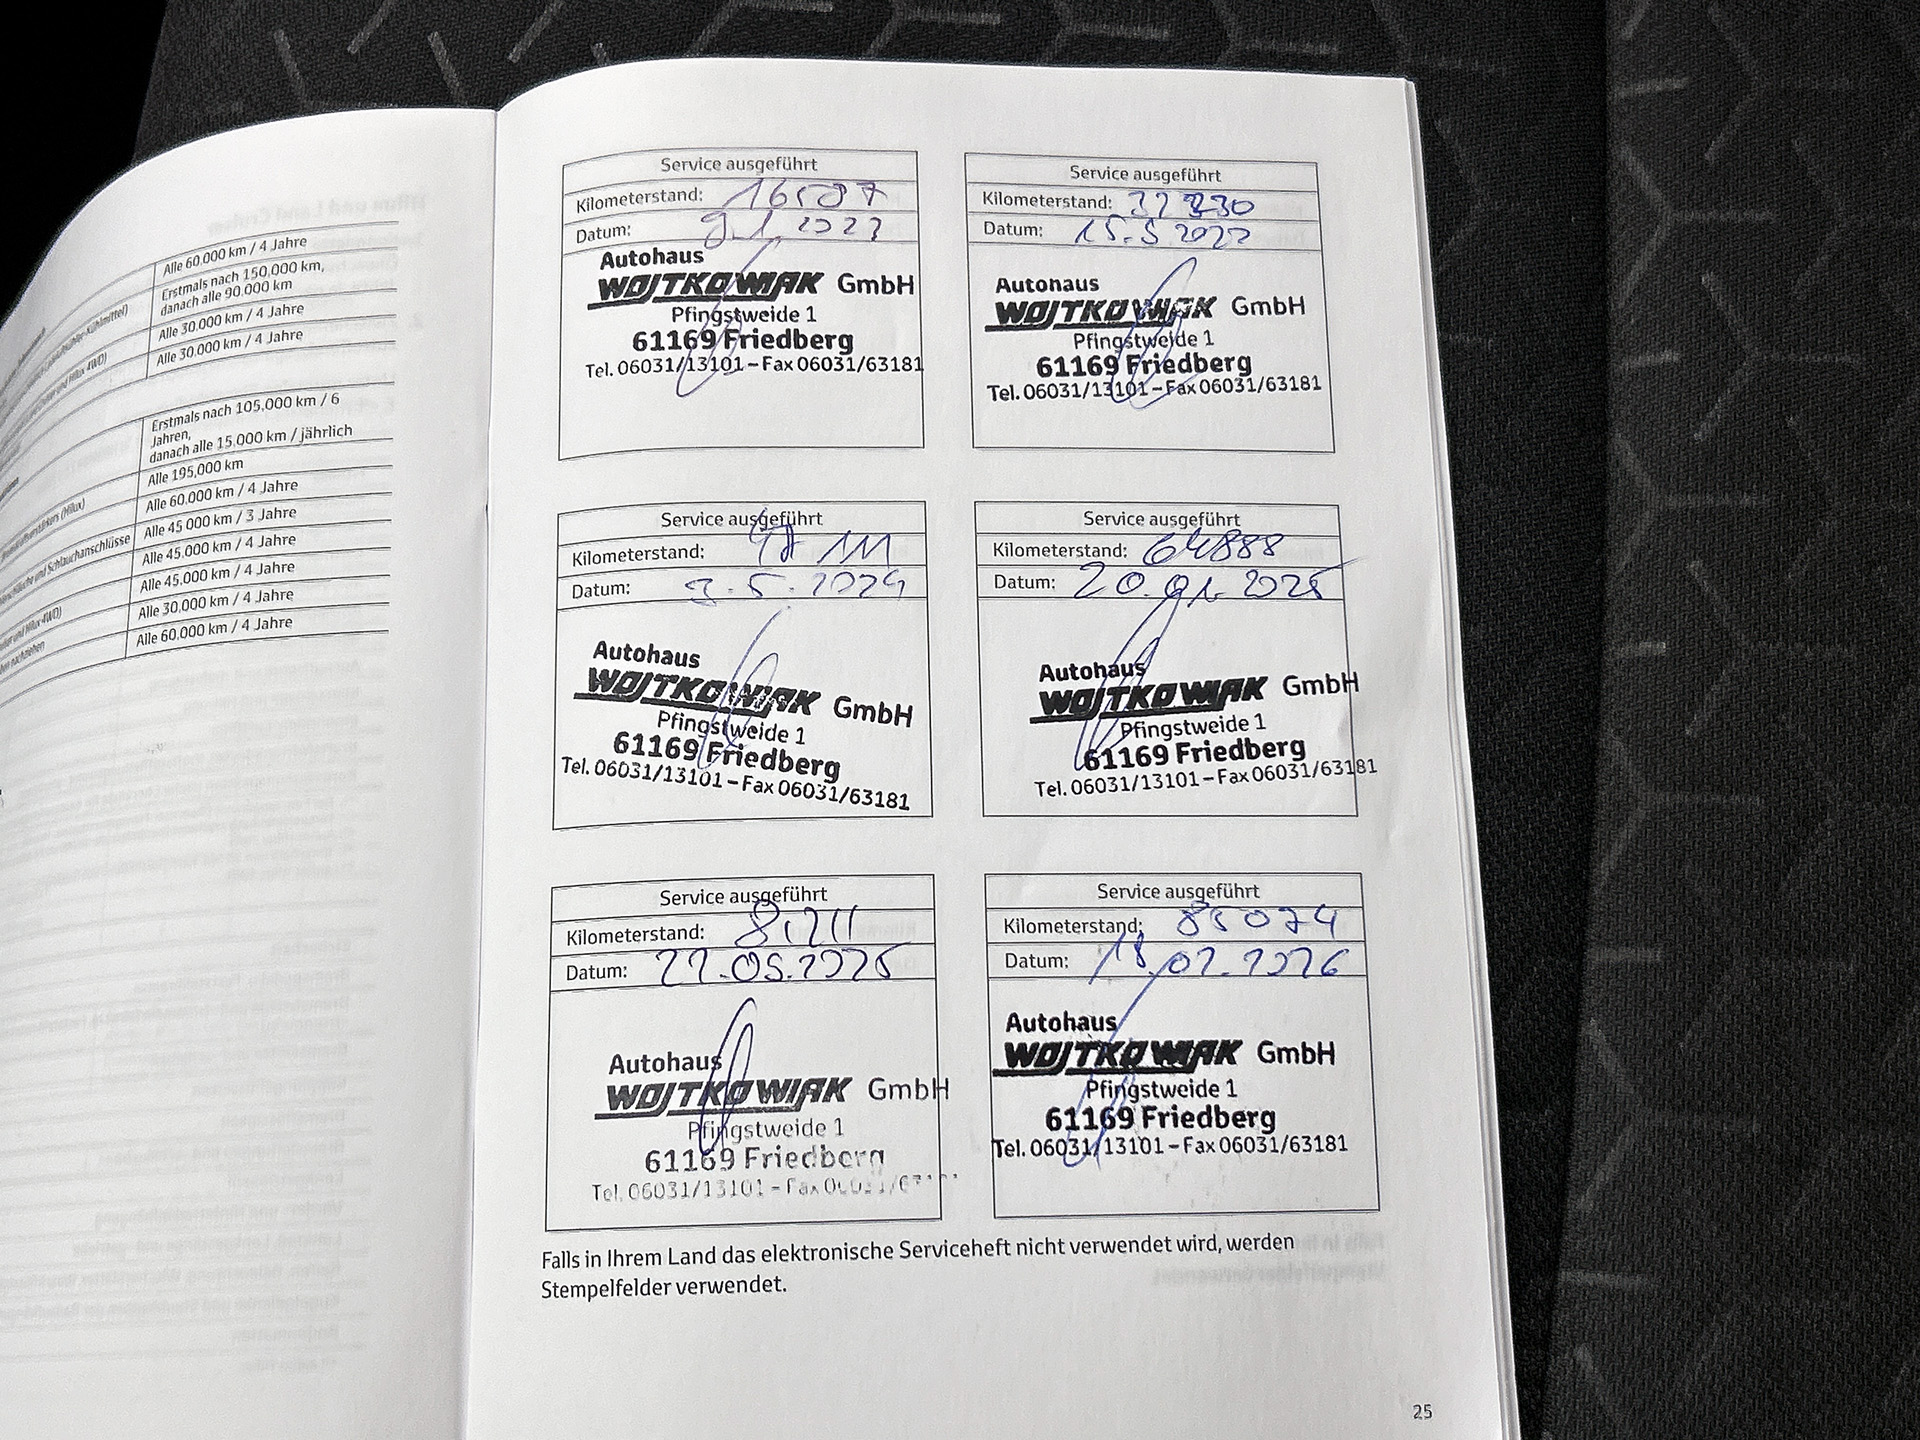 Alle 60.000 km / 4 Jahre
Erstmals nach 150.000 km,
danach alle 90.000 km
Alle 30.000 km / 4 Jahre
Alle 30.000 km / 4 Jahre
Erstmals nach 105.000 km / 6
Jahren,
danach alle 15.000 km / jährlich
Alle 195.000 km
Alle 60.000 km / 4 Jahre
Schlauchanschlüsse
Alle 45 000 km / 3 Jahre
Alle 45.000 km / 4 Jahre
Alle 45.000 km / 4 Jahre
Alle 30.000 km / 4 Jahre
Alle 60.000 km / 4 Jahre
Service ausgeführt
Kilometerstand: 16587
Datum: 9.1.2023
Autohaus
WOJTKOWIAK GmbH
Pfingstweide 1
61169 Friedberg
Tel. 06031/13101 – Fax 06031/63181
Service ausgeführt
Kilometerstand:
Datum:
Autohaus
WOJTKOWIAK GmbH
Pfingstweide 1
61169 Friedberg
Tel. 06031/13101 – Fax 06031/63181
Service ausgeführt
Kilometerstand: 47 111
Datum: 3.5.2024
Autohaus
WOJTKOWIAK GmbH
Pfingstweide 1
61169 Friedberg
Tel. 06031/13101 – Fax 06031/63181
Service ausgeführt
Kilometerstand: 64888
Datum: 20.01.2025
Autohaus
WOJTKOWIAK GmbH
Pfingstweide 1
61169 Friedberg
Tel. 06031/13101 – Fax 06031/63181
Service ausgeführt
Kilometerstand: 81211
Datum: 22.05.2025
Autohaus
WOJTKOWIAK GmbH
Pfingstweide 1
61169 Friedberg
Tel. 06031/13101 – Fax
Service ausgeführt
Kilometerstand: 85074
Datum: 18.02.2026
Autohaus
WOJTKOWIAK GmbH
Pfingstweide 1
61169 Friedberg
Tel. 06031/13101 – Fax 06031/63181
Falls in Ihrem Land das elektronische Serviceheft nicht verwendet wird, werden
Stempelfelder verwendet.
25